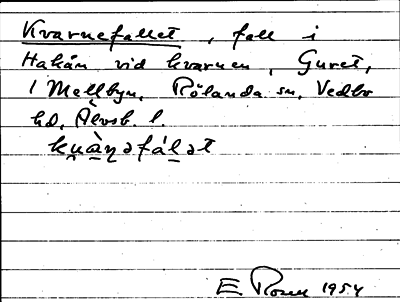 Kvarnefallet, fall i
Hakån vid kvarnen, Guret,
1 Mellbyn, Rölanda sn, Vedbo
hd, Älvsb. l.
ku̯àṇəfálət
E Rosell 1954